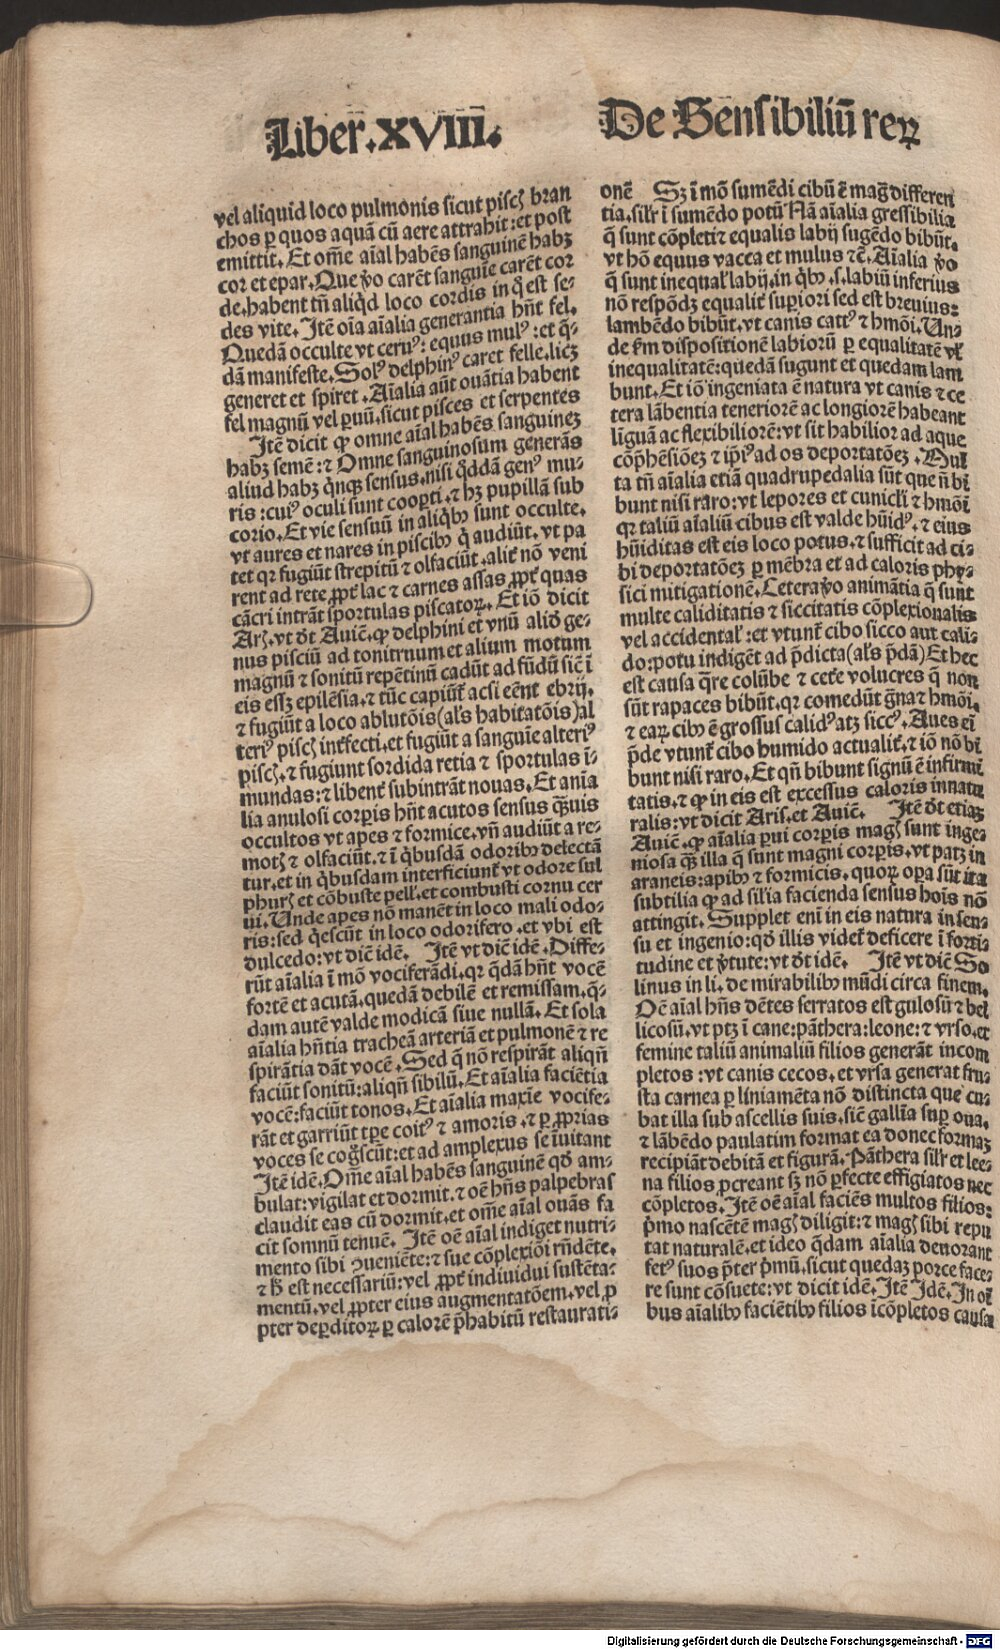 Liber̄.XVIII.
De Sensibiliū reꝝ
vel aliquid loco pulmonis sicut piscꝭ bran
chos ꝑ quos aquā cū aere attrahit: et post
emittit. Et om̄e aīal habēs sanguinē habꝫ
cor et epar. Que ṽo carēt sanguīe carēt cor
de, habent tn̄ aliqd̓ loco cordis in q̄ est se⸗
des vite. Itē oīa aīalia generantia hn̄t fel.
Quedā occulte vt ceruꝰ: equus mulꝰ: et q̄⸗
dā manifeste. Solꝰ delphinꝰ caret felle, licꝫ
generet et spiret. Aīalia aūt ouātia habent
fel magnū vel ꝑuū, sicut pisces et serpentes
Itē dicit ꝙ omne aīal habēs sanguinez
habꝫ semē: ⁊ Omne sanguinosum generās
aliud habꝫ q̓nqꝫ sensus, nisi q̓ddā genꝰ mu⸗
ris: cuiꝰ oculi sunt cooꝑti, ⁊ hꝫ pupillā sub
corio. Et vie sensuū in aliqḃ sunt occulte,
vt aures et nares in pisciḃ q̄ audiūt, vt pa
tet qꝛ fugiūt strepitū ⁊ olfaciūt, alit̓ nō veni
rent ad rete, ꝓpt̓ lac ⁊ carnes assas ꝓpt̓ quas
cācri intrāt sportulas piscatoꝝ. Et iō dicit
Arꝭ, vt dt̓ Auiē. ꝙ delphini et vnū aliđ ge⸗
nus pisciū ad tonitruum et alium motum
magnū ⁊ sonitū repētinū cadūt ad fūdū sic̄ ī
eis essꝫ epilēsia, ⁊ tūc capiūt̓ acsi eēnt ebrij.
⁊ fugiūt a loco ablutōis (al̓s habitatōis) al
teriꝰ piscꝭ int̓fecti, et fugiūt a sanguīe alteriꝰ
piscꝭ, ⁊ fugiunt sordida retia ⁊ sportulas ī⸗
mundas: ⁊ libent̓ subintrāt nouas. Et anīa
lia anulosi corꝑis hn̄t acutos sensus q̄uis
occultos vt apes ⁊ formice, vn̄ audiūt a re⸗
motꝭ ⁊ olfaciūt, ⁊ ī q̓busdā odoriḃ delectā
tur, et in q̓busdam interficiunt̓ vt odore sul
phurꝭ et cōbuste pell̓, et combusti cornu cer
ui. Unde apes nō manēt in loco mali odo⸗
ris: sed q̓escūt in loco odorifero, et vbi est
dulcedo: vt dic̄ idē. Itē vt dic̄ idē. Diffe⸗
rūt aīalia ī mō vociferādi, qꝛ q̄dā hn̄t vocē
fortē et acutā, quedā debilē et remissam, q̄⸗
dam autē valde modicā siue nullā. Et sola
aīalia hn̄tia tracheā arteriā et pulmonē ⁊ re
spirātia dāt vocē. Sed q̄ nō respirāt aliqn̄
faciūt sonitū: aliqn̄ sibilū. Et aīalia faciētia
vocē: faciūt tonos. Et aīalia maxīe vocife⸗
rāt et garriūt tꝑe coitꝰ ⁊ amoris, ⁊ ꝑ ꝓprias
voces se cog̓scūt: et ad amplexus se īuitant
Itē idē. Om̄e aīal habēs sanguinē qđ am⸗
bulat: vigilat et dormit, ⁊ oē hn̄s palpebras
claudit eas cū dormit, et om̄e aīal ouās fa
cit somnū tenuē. Itē oē aīal indiget nutri⸗
mento sibi ꝯueniēte: ⁊ sue cōplexiōi rn̄dēte,
⁊ ħ est necessariū: vel ꝓpt̓ indiuidui sustēta⸗
mentū, vel ꝓpter eius augmentatōem, vel ꝓ
pter deꝑditoꝝ ꝑ calorē p̄habitū restaurati⸗
onē Sꝫ ī mō sumēdi cibū ē maḡ differen
tia, sil̓r ī sumēdo potū Nā aīalia gressibilia
q̄ sunt cōpleti ⁊ equalis labij sugēdo bibūt,
vt hō equus vacca et mulus ⁊c̄. Aīalia ṽo
q̄ sunt inequal̓ labij, in qḃ .s. labiū inferius
nō respōdꝫ equalit̓ suꝑiori sed est breuius:
lambēdo bibūt, vt canis cattꝰ ⁊ hmōi. Un⸗
de fm̄ dispositionē labiorū ꝑ equalitatē vl̓
inequalitatē: quedā sugunt et quedam lam
bunt. Et iō ingeniata ē natura vt canis ⁊ ce
tera lābentia teneriorē ac longiorē habeant
līguā ac flexibiliorē: vt sit habilior ad aque
cōp̄hēsiōeꝫ ⁊ ip̄iꝰ ad os deportatōeꝫ. Mul
ta tn̄ aīalia etiā quadrupedalia sūt que n̄ bi
bunt nisi raro: vt lepores et cunicl̓i ⁊ hmōi
qꝛ taliū aīaliū cibus est valde hūidꝰ, ⁊ eius
hūiditas est eis loco potus, ⁊ sufficit ad ci⸗
bi deportatōeꝫ ꝑ mēbra et ad caloris phy⸗
sici mitigationē. Cetera ṽo animātia q̄ sunt
multe caliditatis ⁊ siccitatis cōplexionalis
vel accidental̓: et vtunt̓ cibo sicco aut cali⸗
do: potu indigēt ad p̄dicta (al̓s p̄dā) Et hec
est causa q̄re colūbe ⁊ cet̓e volucres q̄ non
sūt rapaces bibūt, qꝛ comedūt g̓na ⁊ hmōi,
⁊ eaꝝ ciḃ ē grossus calidꝰ atqꝫ siccꝰ. Aues eī
p̄de vtunt̓ cibo humido actualit̓, ⁊ iō nō bi
bunt nisi raro. Et qn̄ bibunt signū ē infirmi
tatis, ⁊ ꝙ in eis est excessus caloris innatu
ralis: vt dicit Aris. et Auiē. Itē dt̓ etiaꝫ
Auiē. ꝙ aīalia ꝑui corꝑis magꝭ sunt inge⸗
niosa q̄ꝫ illa q̄ sunt magni corꝑis, vt patꝫ in
araneis: apiḃ ⁊ formicis, quoꝝ oꝑa sūt ita
subtilia ꝙ ad sil̓ia facienda sensus hoīs nō
attingit. Supplet enī in eis natura in sen⸗
su et ingenio: qđ illis videt̓ deficere ī forti⸗
tudine et v̓tute: vt dt̓ idē. Itē vt dic̄ So
linus in li. de mirabiliḃ mūdi circa finem.
Oē aīal hn̄s dētes serratos est gulosū ⁊ bel
licosū, vt ptꝫ ī cane: pāthera: leone: ⁊ vrso, et
femine taliū animaliū filios generāt incom
pletos: vt canis cecos, et vrsa generat fru⸗
sta carnea ꝑ liniamēta nō distincta que cu⸗
bat illa sub ascellis suis, sic̄ gallīa suꝑ oua,
⁊ lābēdo paulatim format ea donec formaꝫ
recipiāt debitā et figurā. Pāthera sil̓r et lee⸗
na filios ꝓcreant sꝫ nō ꝑfecte effigiatos nec
cōpletos. Itē oē aīal faciēs multos filios:
p̓mo nascētē magꝭ diligit: ⁊ magꝭ sibi repu
tat naturalē, et ideo q̄dam aīalia deuorant
fetꝰ suos p̄ter p̓mū, sicut quedaꝫ porce face⸗
re sunt cōsuete: vt dicit idē. Itē Idē. In oī
bus aīaliḃ faciētiḃ filios īcōpletos causa
Digitalisierung gefördert durch die Deutsche Forschungsgemeinschaft - DFG